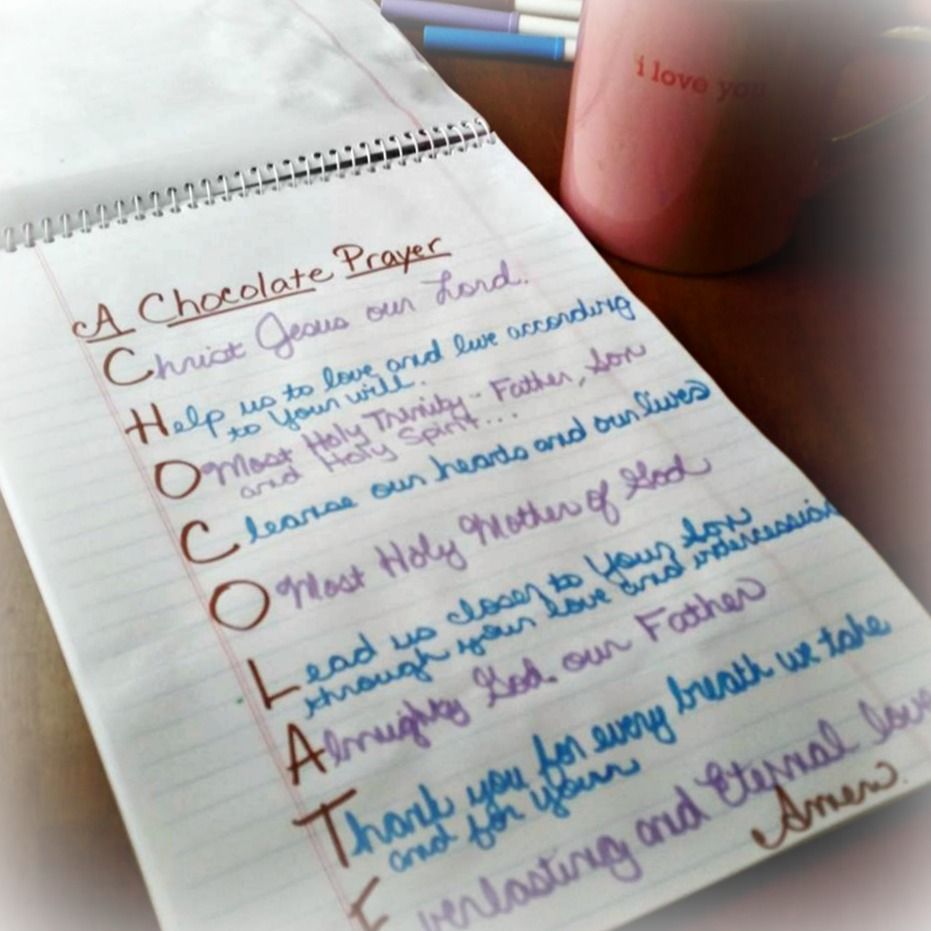 i love you
A Chocolate Prayer
Christ Jesus our Lord.
Help us to love and live according
to Your will.
O Most Holy Trinity - Father, Son
and Holy Spirit...
Cleanse our hearts and our lives
O Most Holy Mother of God
Lead us closer to Your Son
through your love and intercession
Almighty God our Father
Thank you for every breath we take
and for Your
Everlasting and Eternal love
Amen.